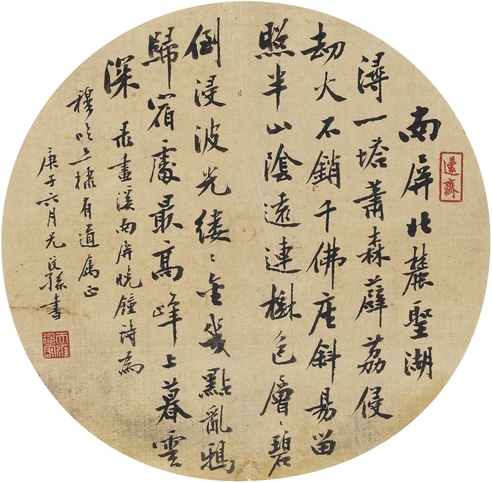 南屏北麓聖湖
潯一塔蕭森薜荔侵
劫火不銷千佛座斜昜留
照半山陰遠連樹色層〻碧
倒浸波光縷〻金幾點亂鴉
歸宿處最高峰上暮雲
深 畫溪南屏晚鐘詩為
穆吟棣有道属正
庚子六月孫書